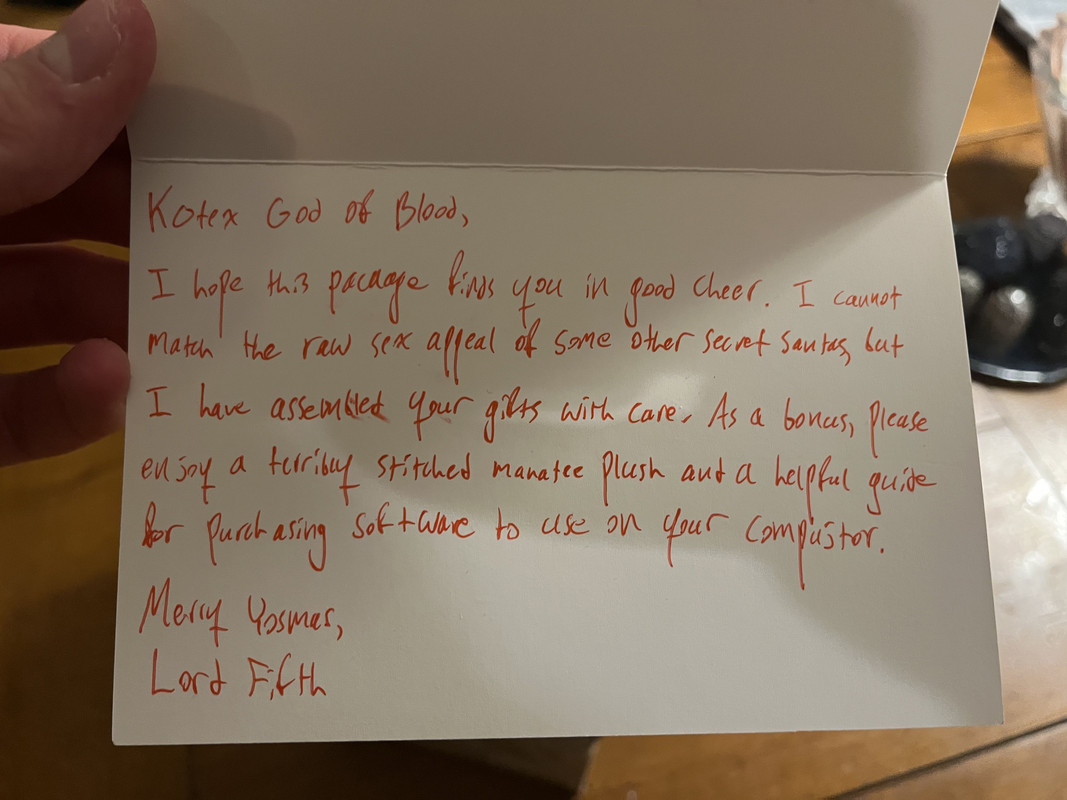 Kotex God of Blood,
I hope this package finds you in good cheer. I cannot
match the raw sex appeal of some other secret santas, but
I have assembled your gifts with care. As a bonus, please
enjoy a terribly stitched manatee plush and a helpful guide
for purchasing software to use on your compüstor.
Merry Yosmas,
Lord Fifth